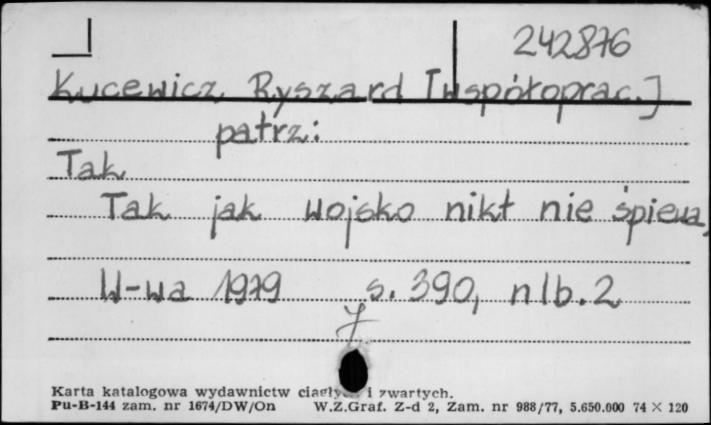 242876
Kucewicz Ryszard [współoprac.]
patrz:
Tak
Tak jak wojsko nikt nie śpiewa,
W-wa 1979 s. 390, nlb. 2
Karta katalogowa wydawnictw i zwartych.
Pu-B-144 zam. nr 1674/DW/On W.Z.Graf. Z-d 2, Zam. nr 988/77, 5.650.000 74 × 120